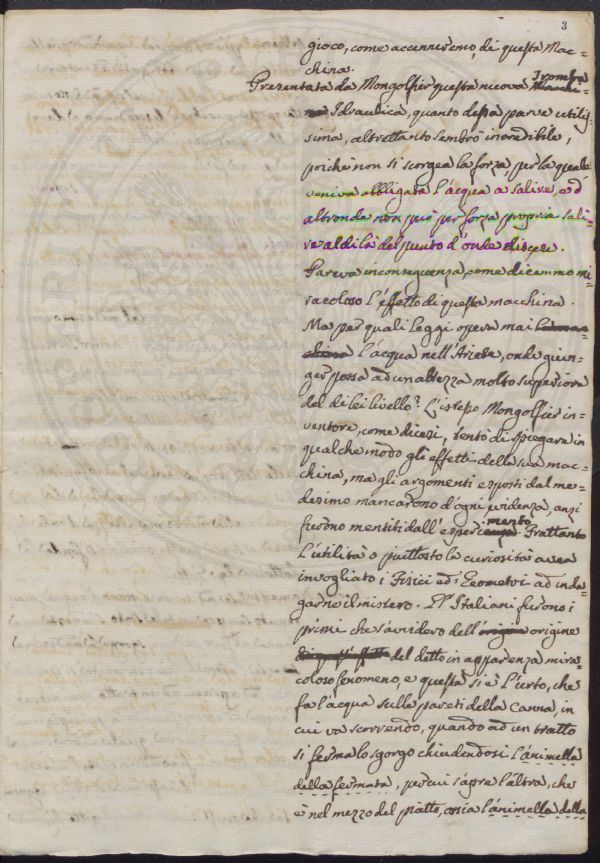 3
gioco, come accennaremo, di questa Mac=
china.
Presentata da Mongolfier questa nuova Tromba
Idraulica, quanto dessa parve utilis=
sima, altrettanto sembrò incredibile,
poichè non si scorgea la forza, per la quale
veniva obbligata l'acqua a salire, ed
altronde non può per forza propria sali=
re al di là del punto d'onde discese.
Pareva in conseguenza, come dicemmo mi=
racoloso l'effetto di questa macchina.
Ma per quali Leggi opera mai la mac=
china l'acqua nell'Ariete, onde giun=
ger possa ad un altezza molto superiore
del di lei livello? L'istesso Mongolfier in=
ventore, come dicesi, tentò di spiegare in
qualche modo gli effetti della sua mac=
china, ma gli argomenti esposti dal me=
desimo mancarono d'ogni evidenza, anzi
furono mentiti dall'esperimento. Frattanto
L'utilità o piuttosto la curiosità avea
invogliato i Fisici ed i Geometri ad inda=
garne il mistero. Gl'Italiani furono i
primi che s'avvidero dell'origine origine
di questi effetti del detto in apparenza mira=
coloso fenomeno, e questa si è L'urto, che
fa l'acqua sulle pareti della Canna, in
cui va scorrendo, quando ad un tratto
si ferma lo sgorgo chiudendosi l'animella
della fermata, per cui s'apre l'altra, che
è nel mezzo del piatto, ossia l'animella della